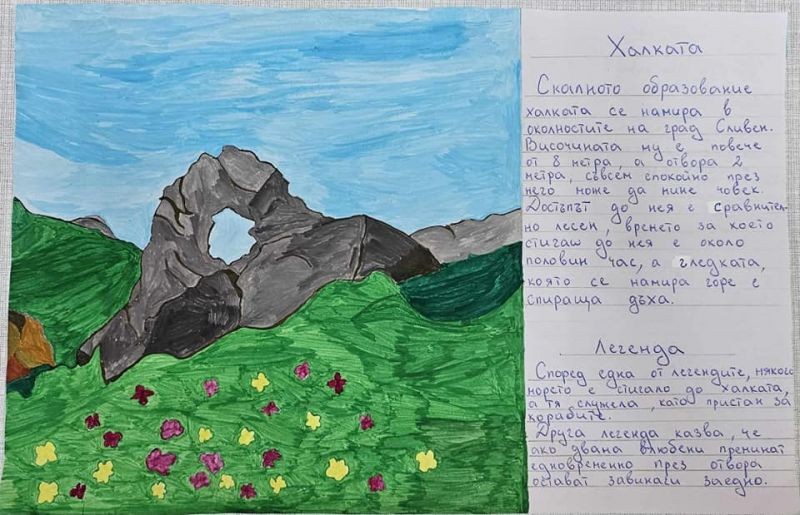 Халката
Скалното образование
халката се намира в
околностите на град Сливен.
Височината му е повече
от 8 метра, а отвора 2
метра, съвсем спокойно през
него може да мине човек.
Достъпът до нея е сравнител-
но лесен, времето за което
стигаш до нея е около
половин час, а гледката,
която се намира горе е
спираща дъха.
Легенда
Според една от легендите, някога
морето е стигало до халката,
а тя служела, като пристан за
корабите.
Друга легенда казва, че
ако двама влюбени преминат
едновременно през отвора
остават завинаги заедно.